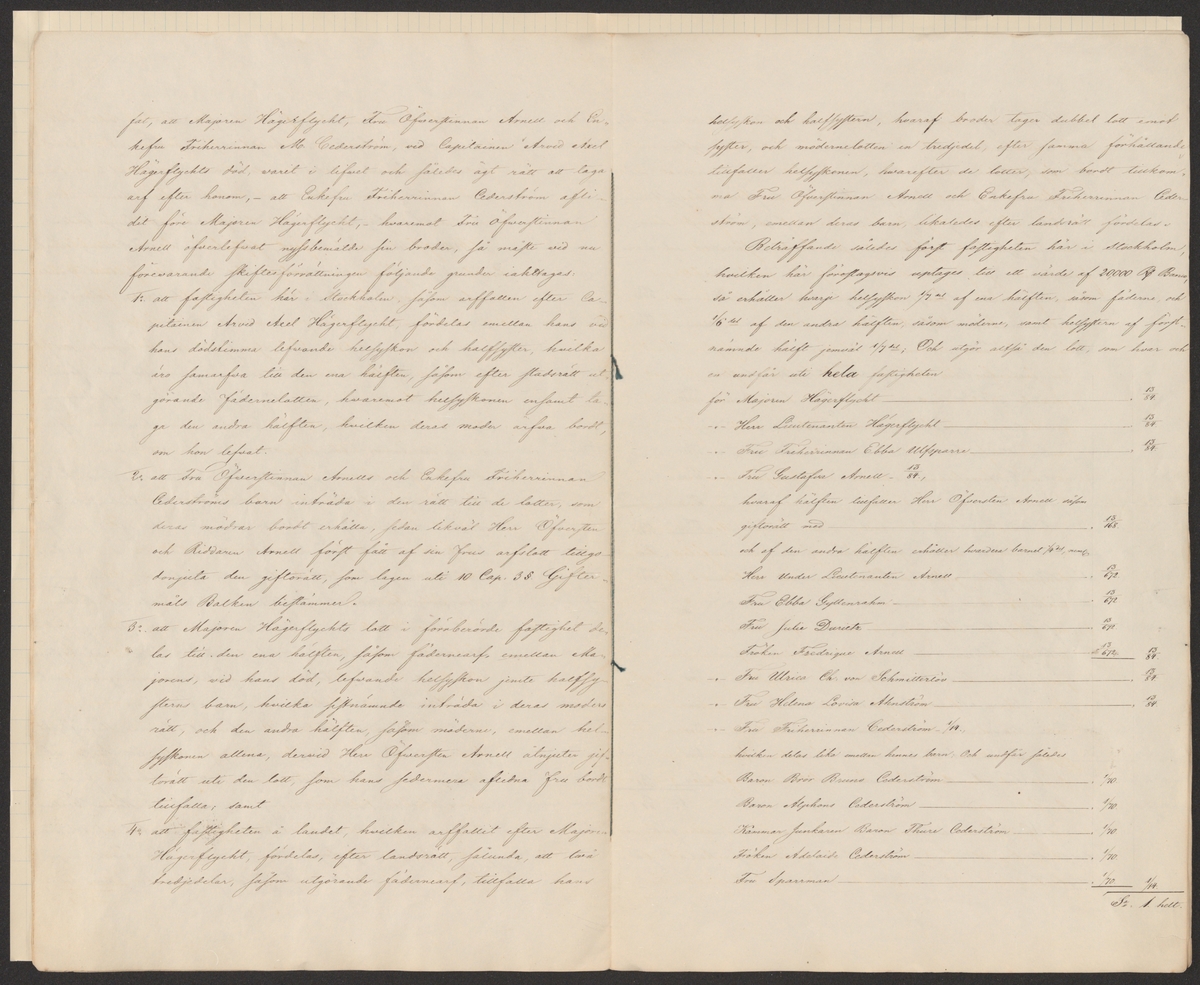 jat, att Majoren Hägerflycht, Fru Öfverstinnan Arnell och En-
kefru Friherrinnan M. Cederström, vid Capitainen Arvid Axel
Hägerflychts död, varit i lifvet och således ägt rätt att taga
arf efter honom, – att Enkefru Friherrinnan Cederström afli-
dit före Majoren Hägerflycht, – hvaremot Fru Öfverstinnan
Arnell öfverlefvat nyssbemälde sin broder, så måste vid nu
förevarande skiftesförrättningen följande grunder iakttagas.
1o. att fastigheten här i Stockholm, såsom arffallen efter Ca-
pitainen Arvid Axel Hägerflycht, fördelas emellan hans vid
hans dödstimma lefvande helsyskon och halfsyster, hvilka
äro samarfva till den ena hälften, såsom efter stadsrätt ut-
görande fädernelotten, hvaremot helsyskonen ensamt ta-
ga den andra hälften, hvilken deras moder ärfva bordt,
om hon lefvat.
2o. att Fru Öfverstinnan Arnells och Enkefru Friherrinnan
Cederströms barn inträda i den rätt till de lotter, som
deras mödrar bordt erhålla, sedan likväl Herr Öfversten
och Riddaren Arnell först fått af sin Frus arfslott tillgo-
donjuta den giftorätt, som lagen uti 10 Cap. 3 §. Gifter-
måls Balken bestämmer.
3o. att Majoren Hägerflychts lott i förberörde fastighet de-
las till den ena hälften, såsom fädernearf, emellan Ma-
jorens, vid hans död, lefvande helsyskon jemte halfsy-
sterns barn, hvilka sistnämnda inträda i deras moders
rätt, och den andra hälften, såsom möderne, emellan hel-
syskonen allena, dervid Herr Öfversten Arnell åtnjuter gif-
torätt uti den lott, som hans sedermera aflidna Fru bordt
tillfalla; samt
4o. att fastigheten å landet, hvilken arffallit efter Majoren
Hägerflycht, fördelas, efter landsrätt, sålunda, att två
tredjedelar, såsom utgörande fädernearf, tillfalla hans
helsyskon och halfsystern, hvaraf broder tager dubbel lott emot
syster, och mödernelotten en tredjedel, efter samma förhållande,
tillfaller helsyskonen, hvarefter de lotter, som bordt tillkom-
ma Fru Öfverstinnan Arnell och Enkefru Friherrinnan Ceder-
ström, emellan deras barn, likaledes efter landsrätt fördelas.
Beträffande således först fastigheten här i Stockholm,
hvilken här förslagsvis upptages till ett värde af 20,000 Rd Banco,
så erhåller hvarje helsyskon 1/7del af ena hälften, såsom fäderne, och
1/6del af den andra hälften, såsom möderne, samt halfsystern af först-
nämnde hälft jemväl 1/7del; Och utgör altså den lott, som hvar och
en undfår uti hela fastigheten
för Majoren Hägerflycht 13/84.
" Herr Lieutenanten Hägerflycht 13/84.
" Fru Friherrinnan Ebba Ulfsparre 13/84.
" Fru Gustafva Arnell 13/84,
hvaraf hälften tillfaller Herr Öfversten Arnell såsom
giftorätt med 13/168
och af den andra hälften erhåller hvardera barnet 1/4del med
Herr Under Lieutenanten Arnell 13/672
Fru Ebba Gyllenram 13/672
Fru Julia Duriets 13/672
Fröken Fredrique Arnell 13/672 13/84.
" Fru Ulrica Ch. von Schmitterlöw 13/84
" Fru Helena Lovisa Almström 13/84.
" Fru Friherrinnan Cederström 1/14.
hvilken delas lika mellan hennes barn. Och undfår således
Baron Bror Bruno Cederström 1/70
Baron Alphons Cederström 1/70
Kammar Junkaren Baron Thure Cederström 1/70
Fröken Adelaide Cederström 1/70
Fru Sparrman 1/70 1/14.
Sa. 1. helt.